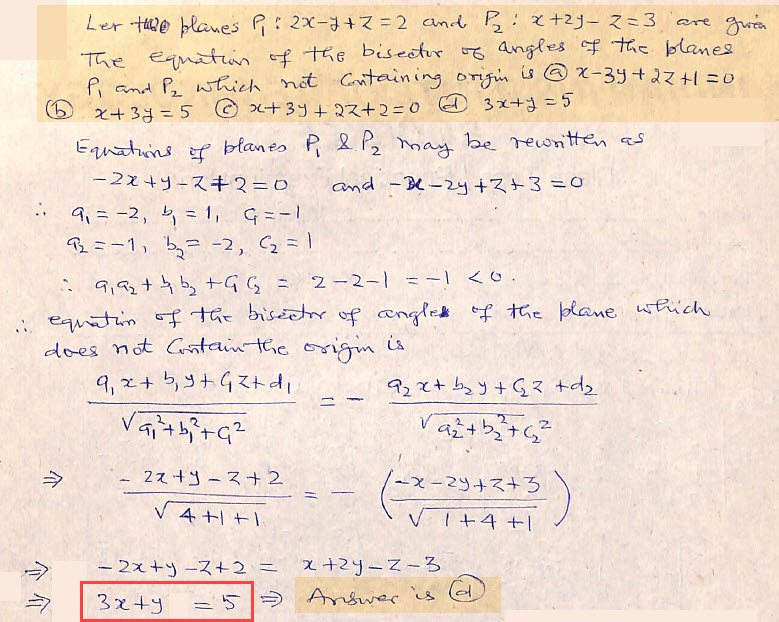 Let two planes P₁ : 2x-y+z=2 and P₂ : x+2y-z=3 are given
The equation of the bisector of angles of the planes
P₁ and P₂ which not containing origin is ⓐ x-3y+2z+1=0
ⓑ x+3y=5 ⓒ x+3y+2z+2=0 ⓓ 3x+y=5
Equations of planes P₁ & P₂ may be rewritten as
-2x+y-z+2=0 and -x-2y+z+3=0
∴ a₁=-2, b₁=1, c₁=-1
a₂=-1, b₂=-2, c₂=1
∴ a₁a₂+b₁b₂+c₁c₂ = 2-2-1 = -1 <0.
∴ equation of the bisector of angles of the plane which
does not contain the origin is
(a₁x+b₁y+c₁z+d₁)/√(a₁²+b₁²+c₁²) = - (a₂x+b₂y+c₂z+d₂)/√(a₂²+b₂²+c₂²)
⇒ (-2x+y-z+2)/√(4+1+1) = - ((-x-2y+z+3)/√(1+4+1))
⇒ -2x+y-z+2 = x+2y-z-3
⇒ 3x+y =5 ⇒ Answer is ⓓ